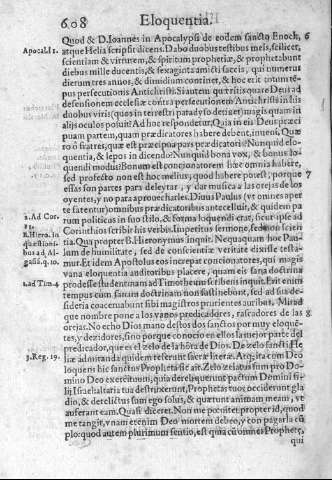 608 Eloquentia.
Quod & D. Ioannes in Apocalypsi de eodem sancto Enoch, 6
Apocal 1. atque Helia scripsit dicens. Dabo duobus testibus meis, scilicet,
scientiam & virtutem, & spiritum prophetiæ, & prophetabunt
diebus mille ducentis, & sexaginta amicti saccis, qui numerus
dierum tres annos, & dimidium continet, & hoc erit totum tẽ-
pus persecutionis Antichristi. Si autem quæritis quare Deus ad
defensionem ecclesiæ contra persecutionem Antichristi in his
duobus viris (quos in terrestri paradyso detinet) magis quam in
alijs oculos posuit? Ad hæc respondetur, Quia in eis Deus præci
puam partem, quam prædicatores habere debent, inuenit. Quæ
ro ô fratres, quæ est præcipua pars prædicatoris? Nunquid elo-
quentia, & lepos in dicendo? Nunquid bona vox, & bonus lo-
quendi modus? Bonum est concionatorem hæc omnia habere,
sed profecto non est hoc melius, quod habere potest, porque 7
essas son partes para deleytar, y dar musica a las orejas de los
oyentes, y no para aprouecharles. Diuus Paulus (vt omnes aper
te fatentur) omnibus prædicatoribus antecelluit, & quidem pa
rum politicus in suo stilo, & forma loquendi erat, sicut ipse ad
2. Ad Cor. 11. Corinthios scribit his verbis. Imperitus sermone, sed non scien-
B. Hiero. in tia. Qua propter B. Hieronymus inquit. Nequaquam hoc Pau-
quæstioni- lum de humilitate, sed de conscientiæ veritate dixisse testa-
bus ad Al- mur. Et idem Apostolus eos increpat concionatores, qui magis
gasiã. q. 10. vana eloquentia auditoribus placere, quam eis sana doctrina
2. ad Tim. 4 prodesse student nam ad Timotheum scribens inquit. Erit enim
tempus cum sanam doctrinam non sustinebunt, sed ad sua de-
sideria coaceruabunt sibi magistros prurientes auribus. Mirad
que nombre pone a los vanos predicadores, rascadores de las 8
orejas. No echo Dios mano destos dos sanctos por muy eloquẽ-
tes, y dezidores, sino porque conocio en ellos la mejor parte del
predicador, que es el zelo de la hõrra de Dios. De zelo sancti He
3. Reg. 19. liæ admiranda quidem referunt sacræ literæ. Atq; ita cum Deo
loquens hic sanctus Propheta sic ait. Zelo zelatus sum pro Do-
mino Deo exercituum, quia dereliquerunt pactum Domini fi-
lij Israel altaria tua destruxerunt, Prophetas tuos occiderunt gla
dio, & derelictus sum ego solus, & quærunt animam meam, vt
auferant eam. Quasi diceret. Non me pœnitet propter id, quod
me tangit, vnam etenim Deo mortem debeo, y con pagarla cũ
plo: quod autem plurimum sentio, est quia cũ omnes Prophetę,
qui